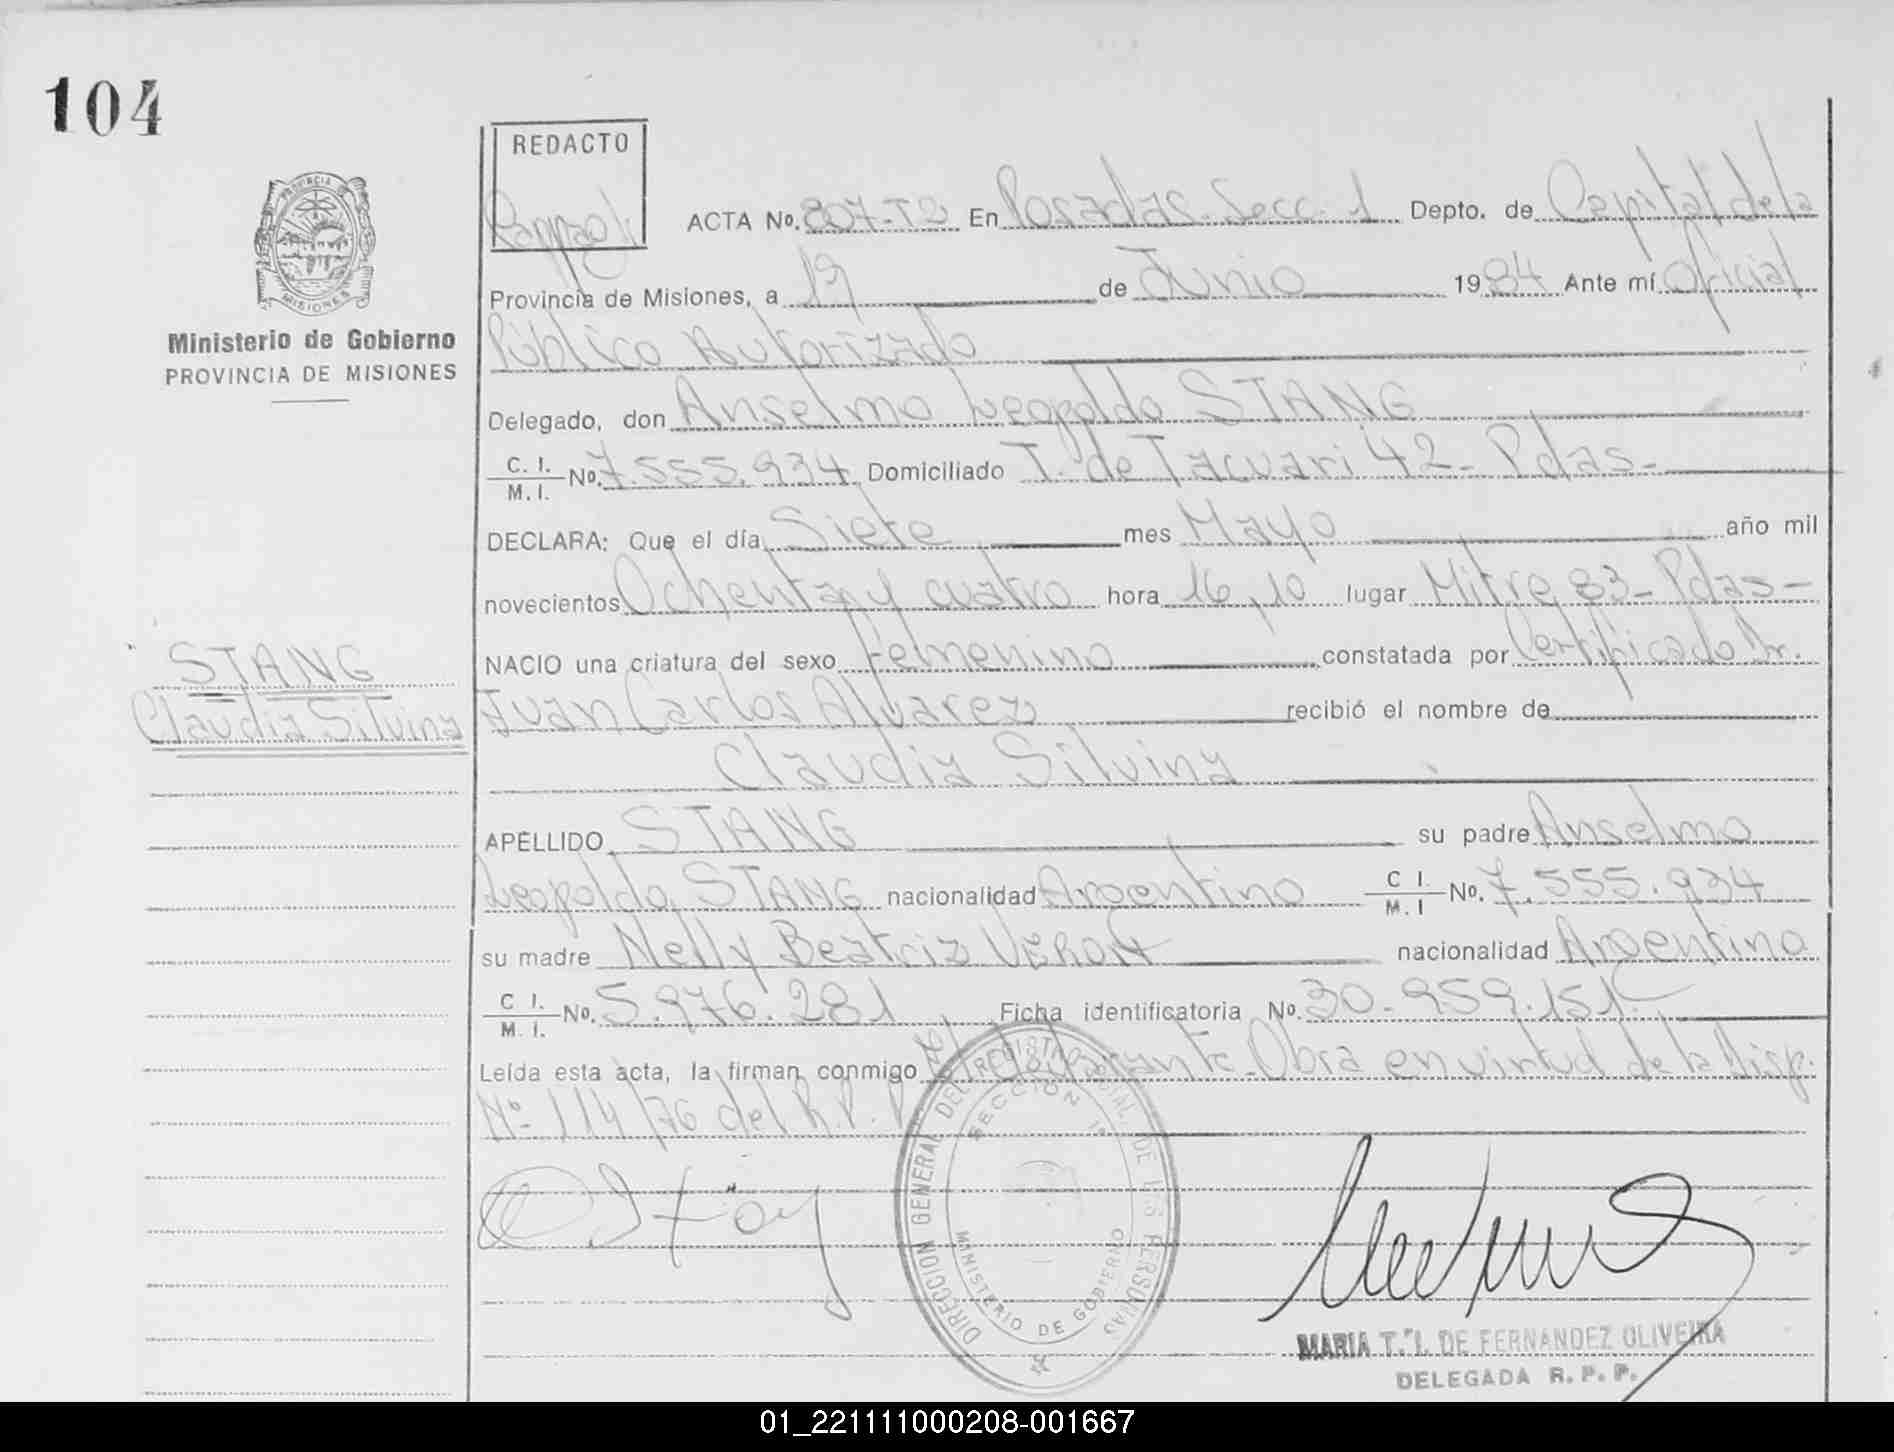 104
REDACTO
ACTA No. 807-T2 En Posadas. Secc. 1 Depto. de Capital de la
PROVINCIA DE
MISIONES
Provincia de Misiones, a 19 de Junio 1984 Ante mí Oficial
Ministerio de Gobierno
PROVINCIA DE MISIONES
Público Autorizado
Delegado, don Anselmo Leopoldo STANG
C. I.
M. I. No. 7.555.934 Domiciliado T. de Tacuari 42 - Pdas-
DECLARA: Que el día Siete mes Mayo año mil
novecientos Ochenta y cuatro hora 16,10 lugar Mitre 83 - Pdas-
NACIO una criatura del sexo Femenino constatada por Certificado Dr.
STANG
Claudia Silvina
Juan Carlos Alvarez recibió el nombre de
Claudia Silvina
APELLIDO STANG su padre Anselmo
Leopoldo STANG nacionalidad Argentino C I.
M. I No. 7.555.934
su madre Nelly Beatriz VERON nacionalidad Argentina
C I.
M. I. No. 5.976.281 Ficha identificatoria No. 30.959.151
Leída esta acta, la firman conmigo El declarante - Obra en virtud de la Disp.
Nº 114/76 del R.P.P
DIRECCION GENERAL DEL REGISTRO PROVINCIAL DE LAS PERSONAS
SECCION 1ª
MINISTERIO DE GOBIERNO
MARIA T. I. DE FERNANDEZ OLIVEIRA
DELEGADA R. P. P.
01_221111000208-001667